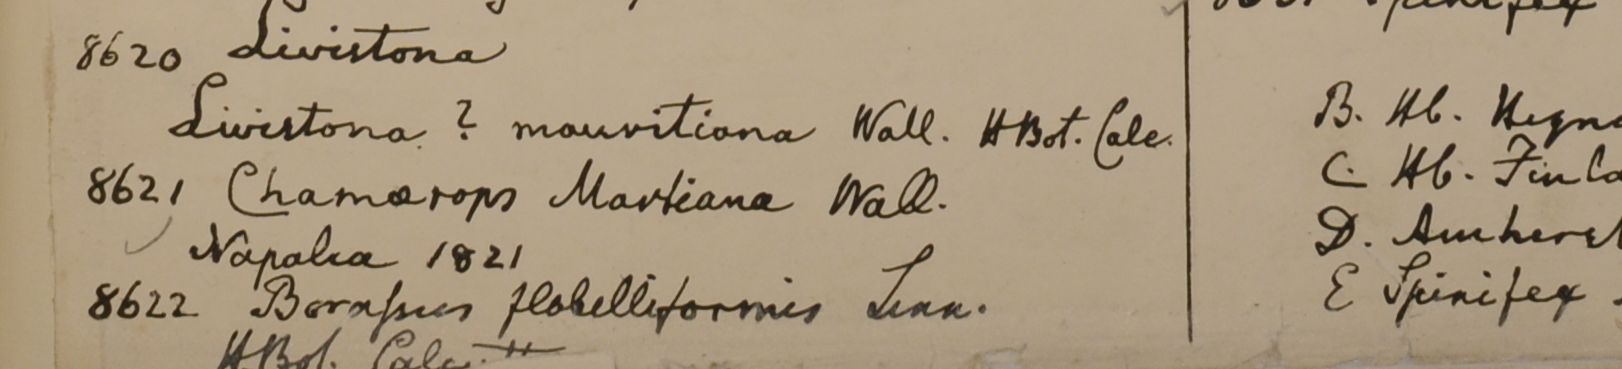 8620 Livistona
Livistona ? mauritiana Wall. H Bot. Calc.
8621 Chamærops Martiana Wall.
Napalia 1821
8622 Borassus flabelliformis Linn.
H. Bot. Calc.
Spinifex
B. Hb.
C. Hb.
D.
E Spinifex